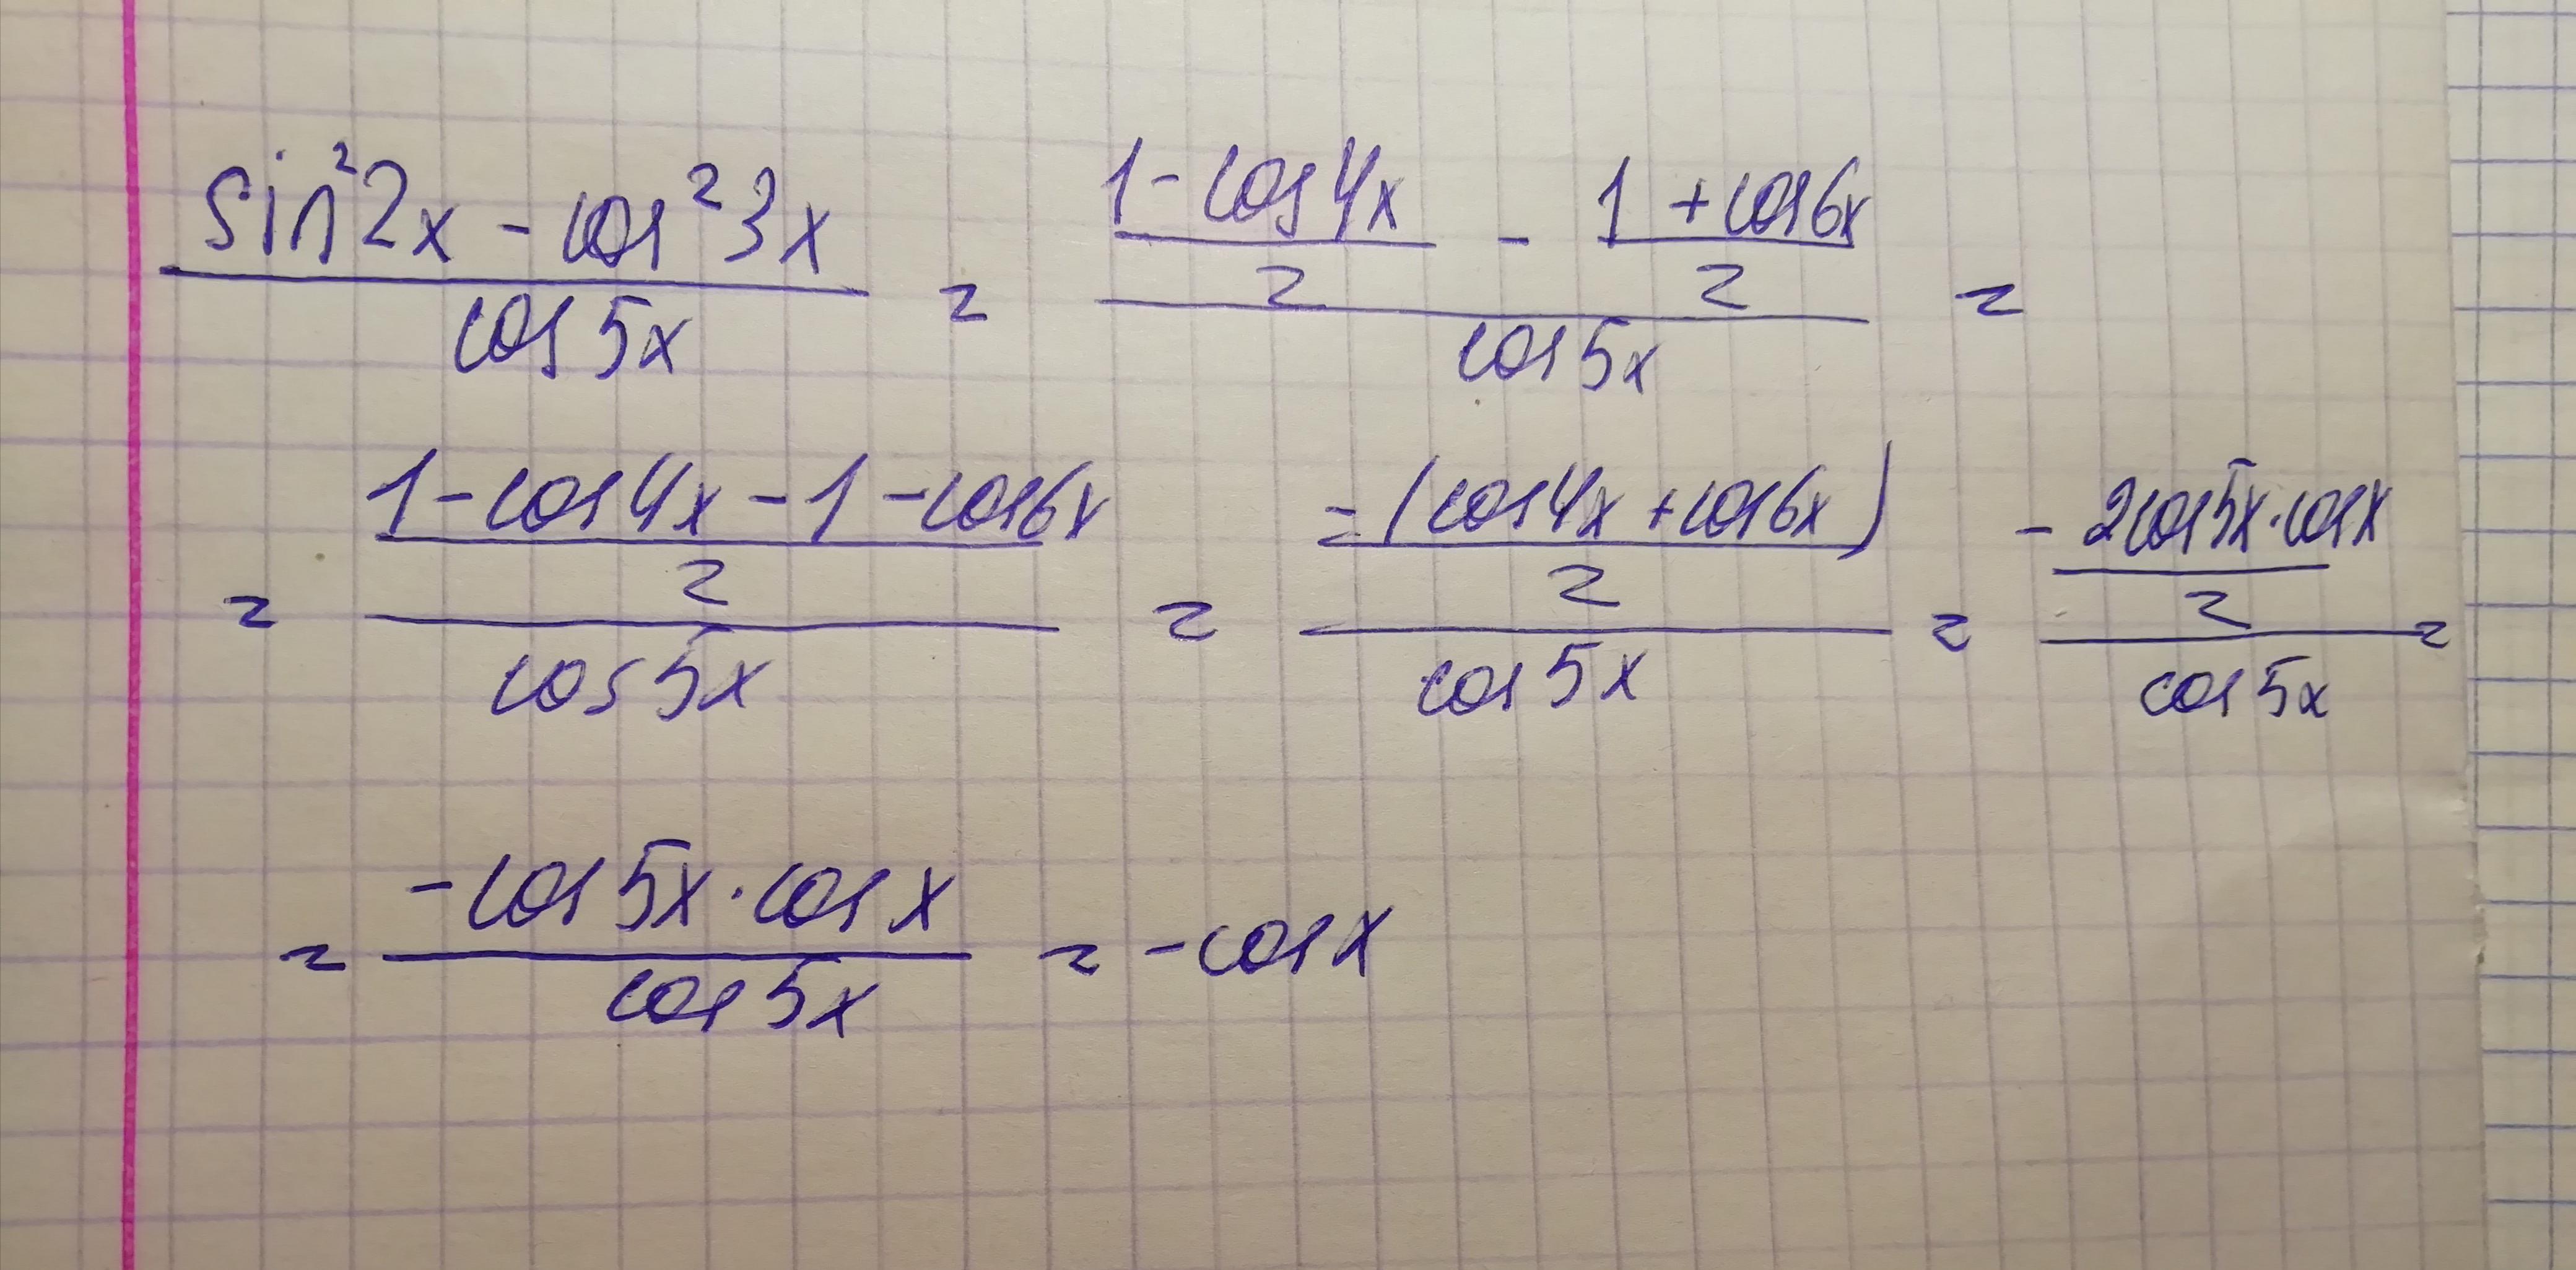 (sin²2x - cos²3x)/(cos 5x) = ((1 - cos 4x)/2 - (1 + cos 6x)/2)/(cos 5x) =
= ((1 - cos 4x - 1 - cos 6x)/2)/(cos 5x) = (-(cos 4x + cos 6x)/2)/(cos 5x) = (-(2cos 5x · cos x)/2)/(cos 5x) =
= (-cos 5x · cos x)/(cos 5x) = -cos x